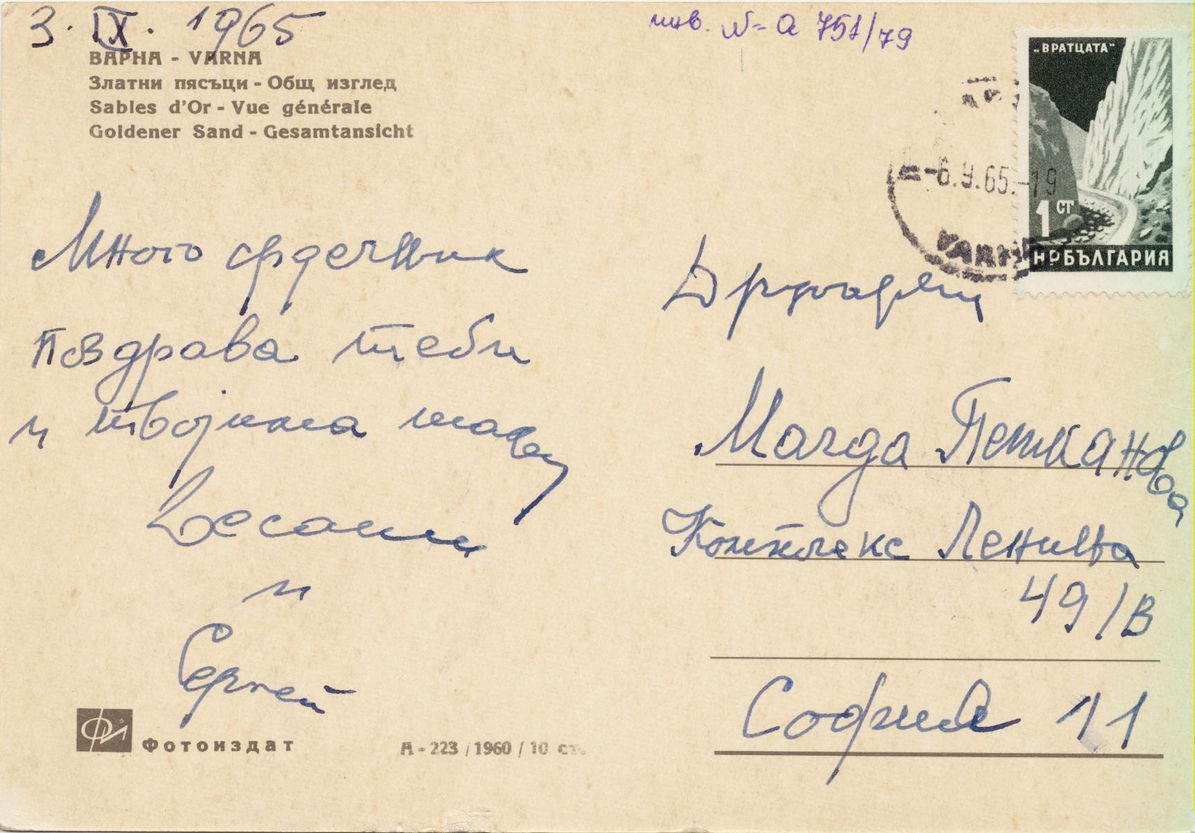 3. IX. 1965
инв. № а 751/79
ВАРНА - VARNA
Златни пясъци - Общ изглед
Sables d'Or - Vue générale
Goldener Sand - Gesamtansicht
„ВРАТЦАТА"
1 СТ
НРБЪЛГАРИЯ
-6.9.65.-19
VARNA
Много сърдечни
поздрава теби
и твојта
и
Сергей
Другарки
Магда Петканова
Комплекс Ленинва
49/В
София 11
Фотоиздат
А - 223 / 1960 / 10 ст.